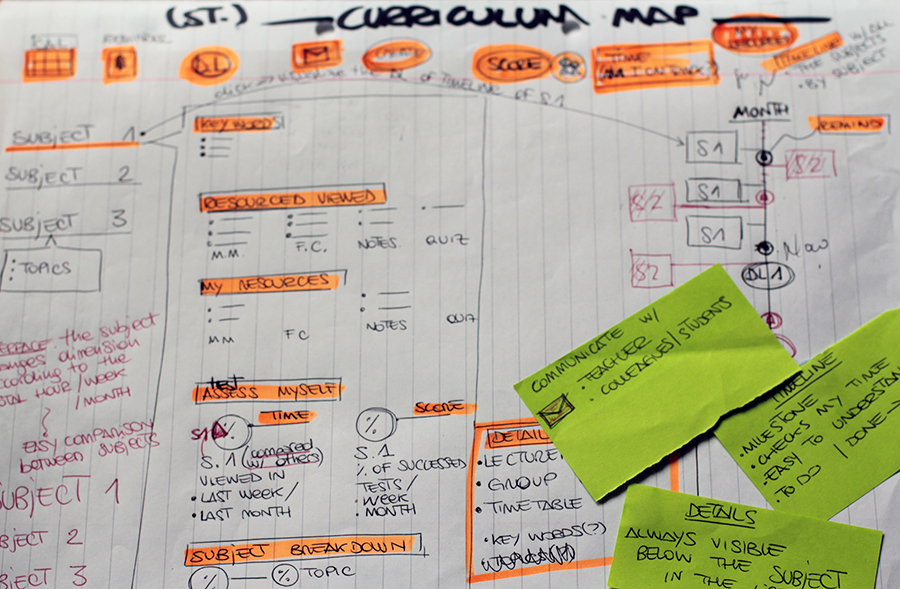 (ST.) CURRICULUM MAP
DL
SCORE
TIME
(AM I ON TRACK?)
MY
TIMELINE W/ALL
THE SUBJECTS
BY SUBJECT
click → visualise the DL of TIMELINE of S1
MONTH
REMIND
SUBJECT 1
SUBJECT 2
SUBJECT 3
TOPICS
KEY WORDS
RESOURCED VIEWED
M.M.
F.C.
NOTES
QUIZ
MY RESOURCES
MM
FC
NOTES
QUIZ
S1
S/2
S1
S/2
S1
S2
Now
DL1
the subject
dimension
according to the
HOUR/WEEK
/MONTH
EASY COMPARISON
BETWEEN SUBJECTS
SUBJECT 1
SUBJECT 2
SUBJECT 3
TEST
ASSESS MYSELF
% TIME
S1
S.1 (compared
w/ others)
VIEWED IN
LAST WEEK/
LAST MONTH
% SCORE
S.1
% OF SUCCESSED
TESTS /
WEEK
MONTH
SUBJECT BREAKDOWN
% — % TOPIC
DETAIL
LECTURE
GROUP
TIMETABLE
KEY WORDS(?)
COMMUNICATE W/
TEACHER
COLLEAGUES/STUDENTS
TIMELINE
MILESTONE
CHECKS MY TIME
EASY TO UNDERSTAND
TO DO / DONE →
DETAILS
ALWAYS VISIBLE
BELOW THE SUBJECT
IN THE